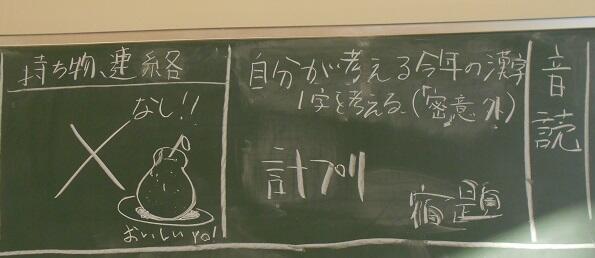 持ち物、連絡
なし!!
おいしいyo!
自分が考える今年の漢字
1字を考える。(「密」意外)
計プリ
宿題
音読